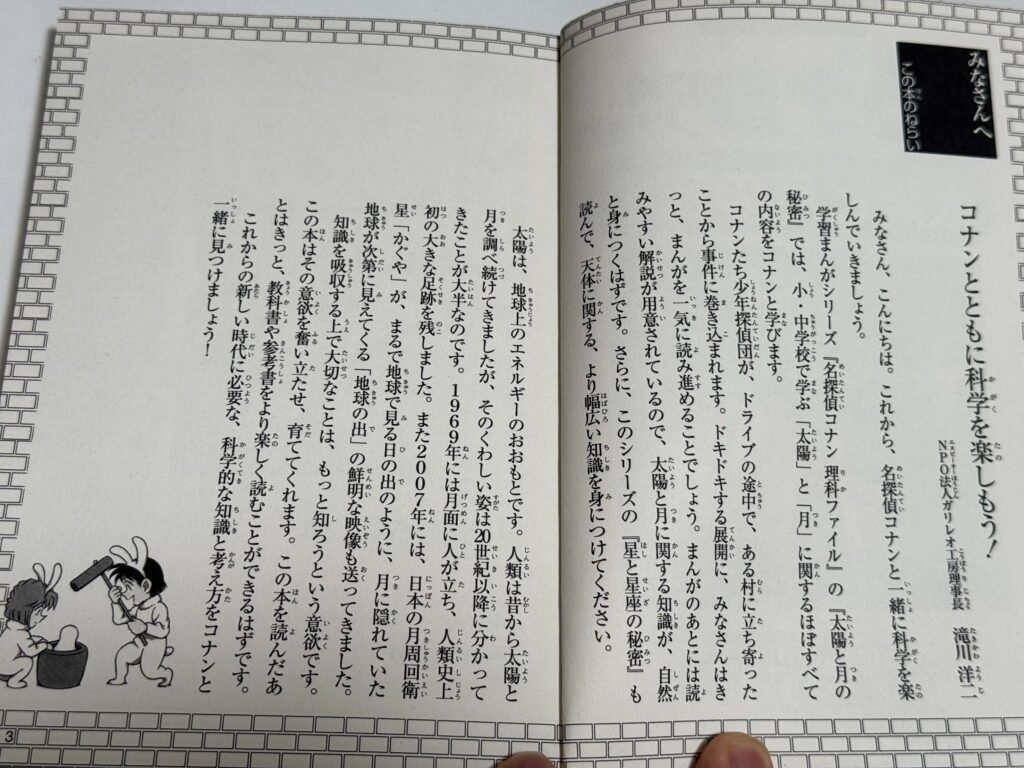 みなさんへ
この本のねらい
コナンとともに科学を楽しもう！
NPO法人ガリレオ工房理事長　滝川洋二
みなさん、こんにちは。これから、名探偵コナンと一緒に科学を楽
しんでいきましょう。
学習まんがシリーズ『名探偵コナン 理科ファイル』の『太陽と月の
秘密』では、小・中学校で学ぶ「太陽」と「月」に関するほぼすべて
の内容をコナンと学びます。
コナンたち少年探偵団が、ドライブの途中で、ある村に立ち寄った
ことから事件に巻き込まれます。ドキドキする展開に、みなさんはき
っと、まんがを一気に読み進めることでしょう。まんがのあとには読
みやすい解説が用意されているので、太陽と月に関する知識が、自然
と身につくはずです。さらに、このシリーズの『星と星座の秘密』も
読んで、天体に関する、より幅広い知識を身につけてください。
太陽は、地球上のエネルギーのおおもとです。人類は昔から太陽と
月を調べ続けてきましたが、そのくわしい姿は20世紀以降に分かって
きたことが大半なのです。1969年には月面に人が立ち、人類史上
初の大きな足跡を残しました。また2007年には、日本の月周回衛
星「かぐや」が、まるで地球で見る日の出のように、月に隠れていた
地球が次第に見えてくる「地球の出」の鮮明な映像も送ってきました。
知識を吸収する上で大切なことは、もっと知ろうという意欲です。
この本はその意欲を奮い立たせ、育ててくれます。この本を読んだあ
とはきっと、教科書や参考書をより楽しく読むことができるはずです。
これからの新しい時代に必要な、科学的な知識と考え方をコナンと
一緒に見つけましょう！
3